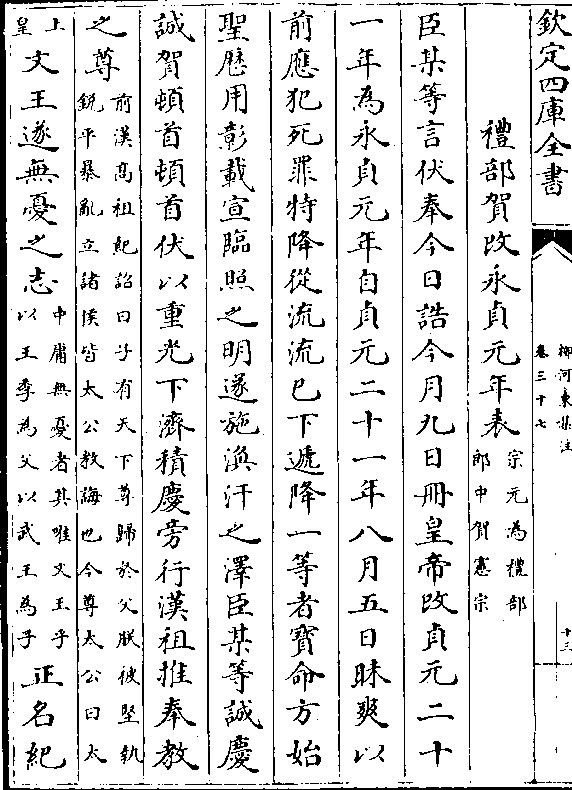 欽定四庫全書
柳河東集注
卷三十七
十三
禮部賀改永貞元年表宗元為禮部
郎中賀憲宗
臣某等言伏奉今日誥今月九日冊皇帝改貞元二十
一年為永貞元年自貞元二十一年八月五日昧爽以
前應犯死罪特降從流流已下遞降一等者寶命方始
聖歴用彰載宣臨照之明遂施渙汗之澤臣某等誠慶
誠賀頓首頓首伏以重光下濟積慶旁行漢祖推奉教
之尊前漢髙祖紀詔曰子有天下尊歸於父朕被堅執
鋭平暴亂立諸侯皆太公教誨也今尊太公曰太
上皇文王遂無憂之志中庸無憂者其唯文王乎
以王季為父以武王為子正名紀